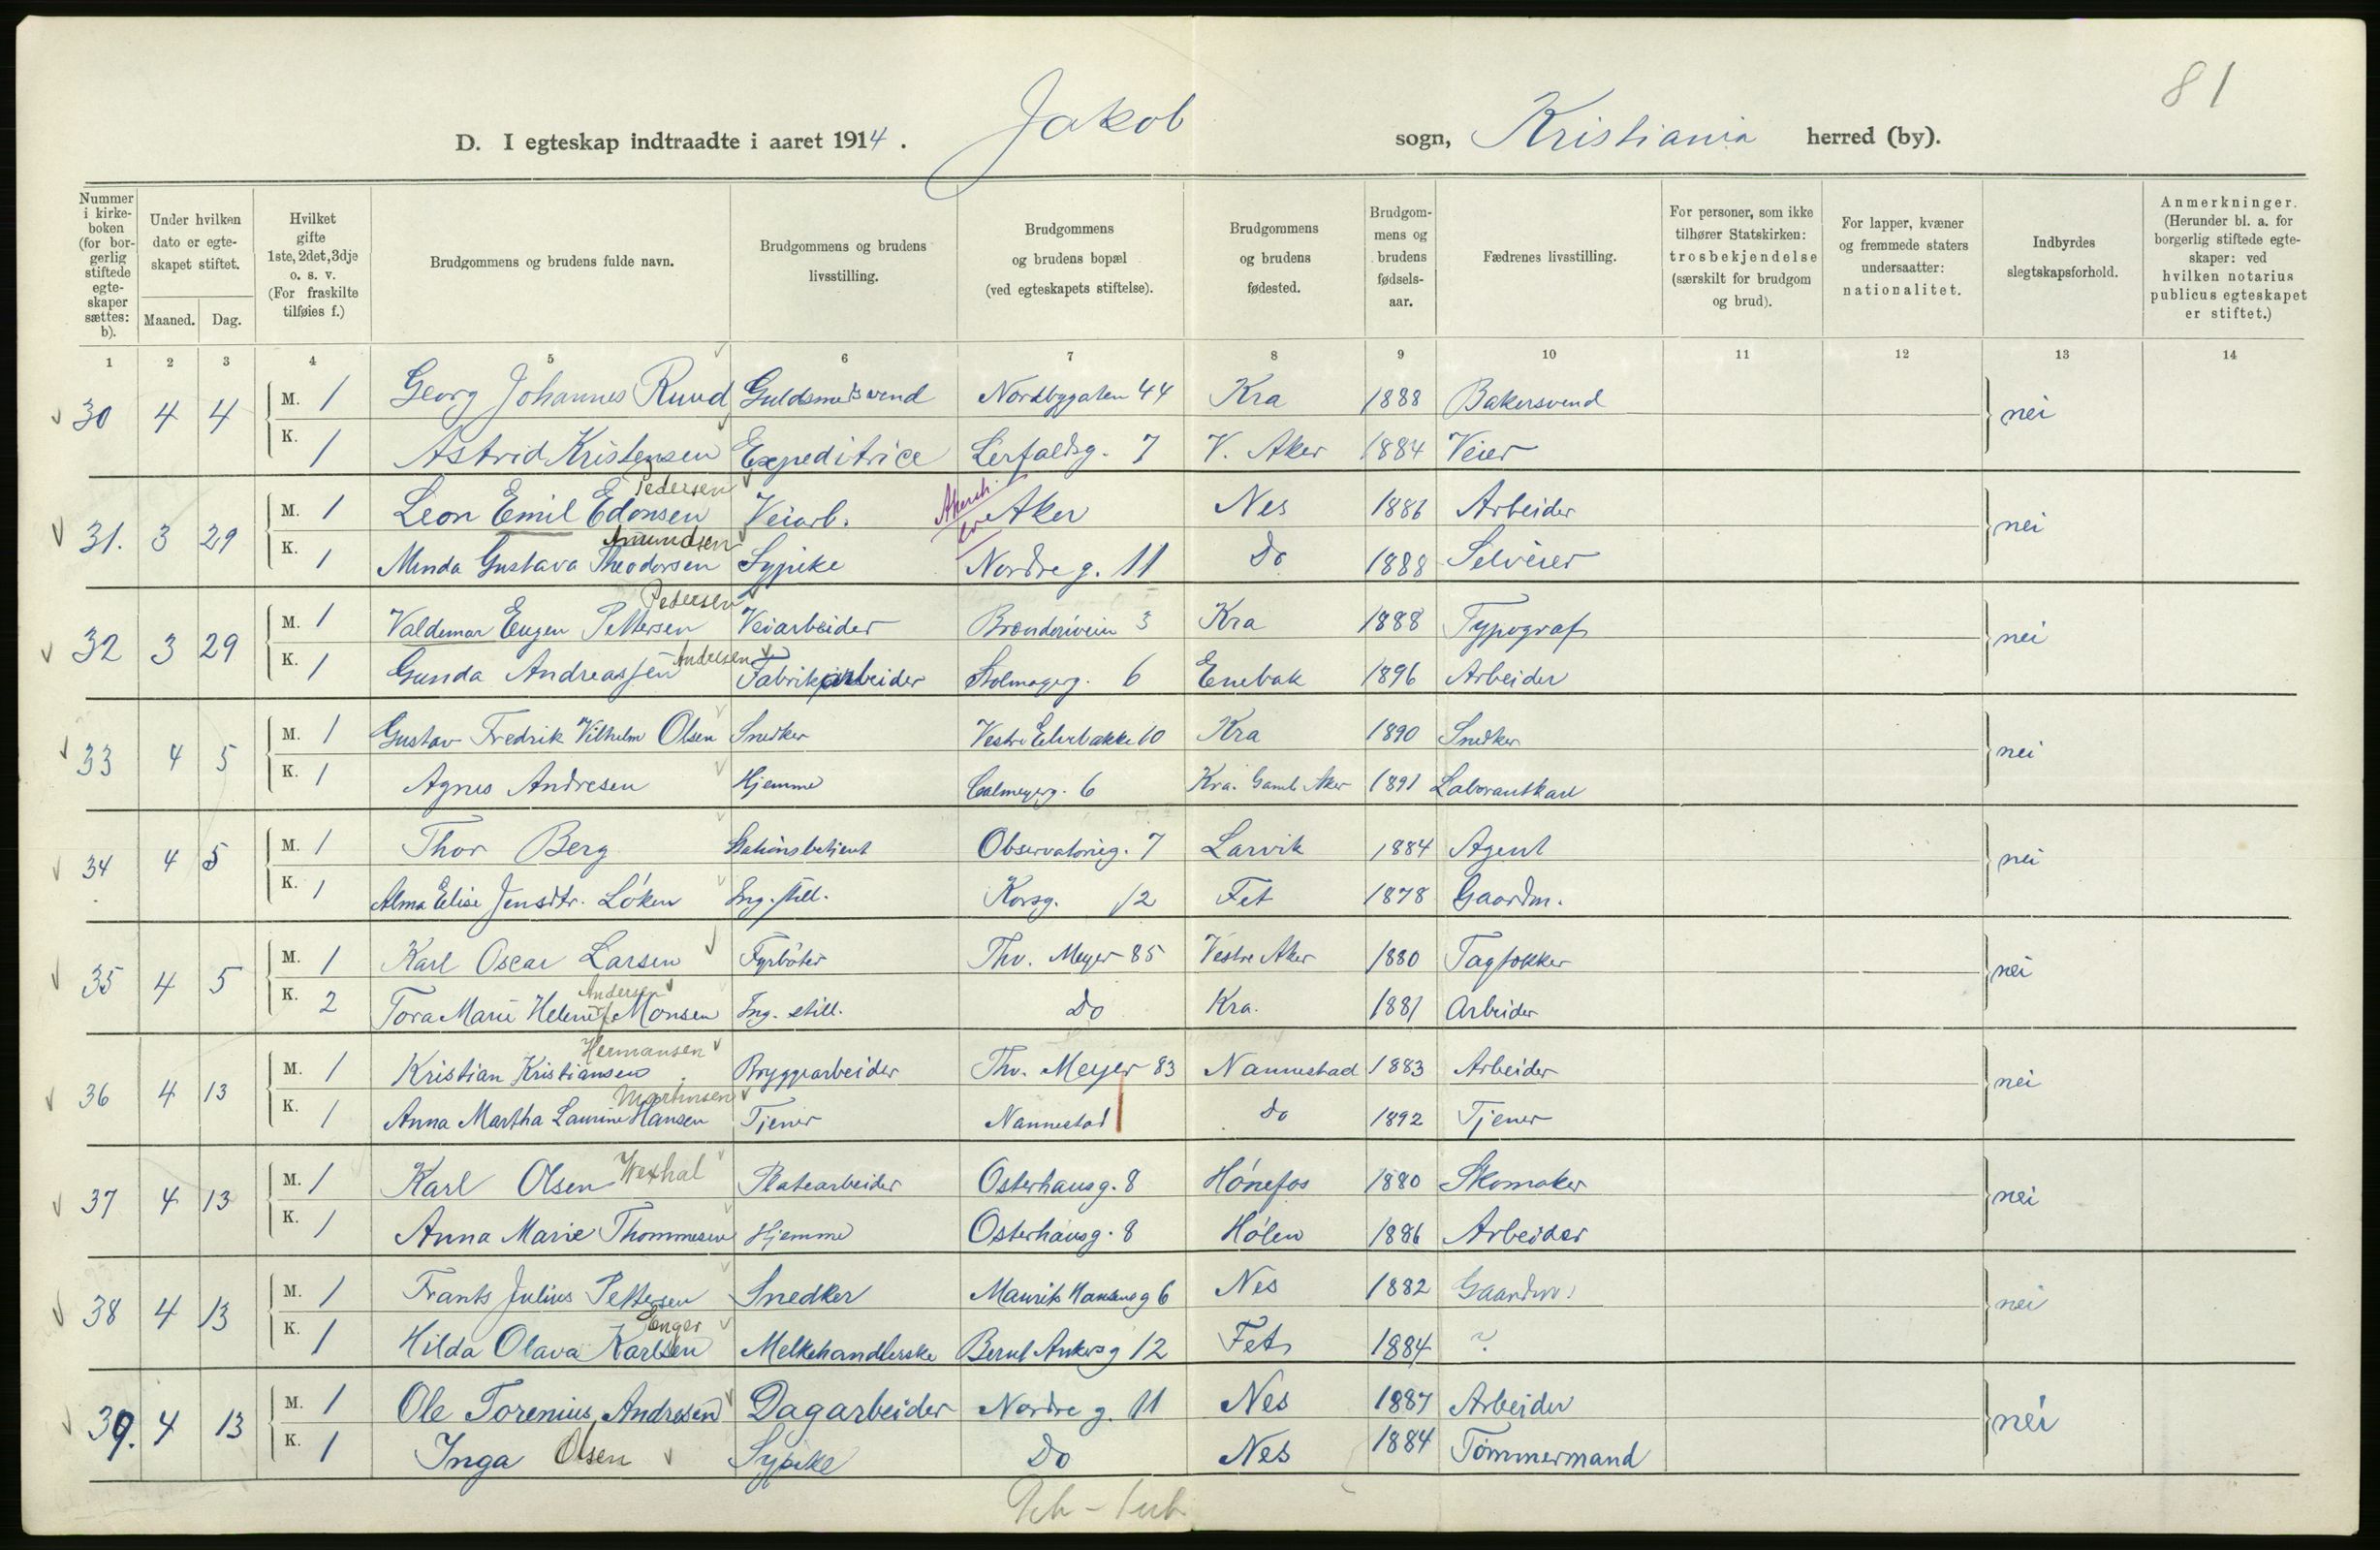 81
D. I egteskap indtraadte i aaret 1914. Jakob sogn, Kristiania herred (by).
Nummer i kirke-boken (for bor-gerlig stiftede egte-skaper sættes: b).
Under hvilken dato er egte-skapet stiftet.
Maaned. Dag.
Hvilket gifte 1ste, 2det, 3dje o. s. v. (For fraskilte tilføies f.)
Brudgommens og brudens fulde navn.
Brudgommens og brudens livsstilling.
Brudgommens og brudens bopæl (ved egteskapets stiftelse).
Brudgommens og brudens fødested.
Brudgom-mens og brudens fødsels-aar.
Fædrenes livsstilling.
For personer, som ikke tilhører Statskirken: trosbekjendelse (særskilt for brudgom og brud).
For lapper, kvæner og fremmede staters undersaatter: nationalitet.
Indbyrdes slegtskapsforhold.
Anmerkninger. (Herunder bl. a. for borgerlig stiftede egte-skaper: ved hvilken notarius publicus egteskapet er stiftet.)
1 2 3 4 5 6 7 8 9 10 11 12 13 14
30 4 4 M. 1 Georg Johannes Ruud Guldsmedsvend Nordbygaten 44 Kra 1888 Bakersvend nei
K. 1 Astrid Kristensen Expeditrice Lerfaldsg. 7 V. Aker 1884 Veier
Pedersen
31. 3 29 M. 1 Leon Emil Edonsen Veiarb. Aker Nes 1886 Arbeider nei
Amundsen
K. 1 Menda Gustava Theodorsen Sypike Nordre g. 11 Do 1888 Selveier
Pedersen
32 3 29 M. 1 Valdemar Eugen Pettersen Veiarbeider Brenneriveien 3 Kra 1888 Typograf nei
Andersen
K. 1 Gunda Andreassen Fabrikarbeider Stolmagerg. 6 Enebak 1896 Arbeider
33 4 5 M. 1 Gustav Fredrik Vilhelm Olsen Snedker Vestre Elvebakke 10 Kra 1890 Snedker nei
K. 1 Agnes Andresen Hjemme Calmeyerg. 6 Kra. Gamle Aker 1891 Laborantkarl
34 4 5 M. 1 Thor Berg Stationsbetjent Observatorieg. 7 Larvik 1884 Agent nei
K. 1 Alma Elise Jensdtr. Löken Ing. still. Korsg. 12 Fet 1878 Gaardm.
35 4 5 M. 1 Karl Oscar Larsen Fyrböter Thv. Meyer 85 Vestre Aker 1880 Tagtækker nei
Andersen
K. 2 Tora Marie Helene f. Monsen Ing. still. Do Kra. 1881 Arbeider
Hermansen
36 4 13 M. 1 Kristian Kristiansen Bryggearbeider Thv. Meyer 83 Nannestad 1883 Arbeider nei
Martinsen
K. 1 Anna Martha Laurine Hansen Tjener Nannestad Do 1892 Tjener
37 4 13 M. 1 Karl Olsen Wexhal Platearbeider Osterhausg. 8 Hönefos 1880 Skomaker nei
K. 1 Anna Marie Thommesen Hjemme Osterhausg. 8 Hölen 1886 Arbeider
38 4 13 M. 1 Frants Julius Pettersen Snedker Maurits Hansens g 6 Nes 1882 Gaardm. nei
Enger
K. 1 Hilda Olava Karlsen Melkehandlerske Bernt Ankers g 12 Fet 1884 ?
39. 4 13 M. 1 Ole Torenius Andresen Dagarbeider Nordre g. 11 Nes 1887 Arbeider nei
K. 1 Inga Olsen Sypike Do Nes 1884 Tömmermand